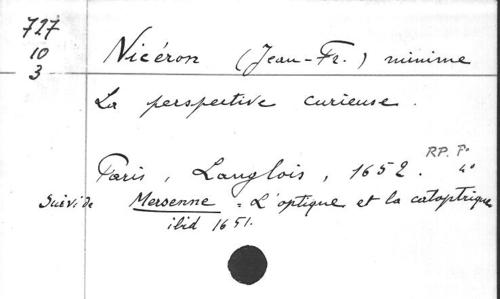 727
10
3
Nicéron (Jean-Fr.) minime
La perspective curieuse.
RP. f°
Paris, Langlois, 1652.
Suivi de Mersenne = L'optique et la catoptrique
ibid 1651.